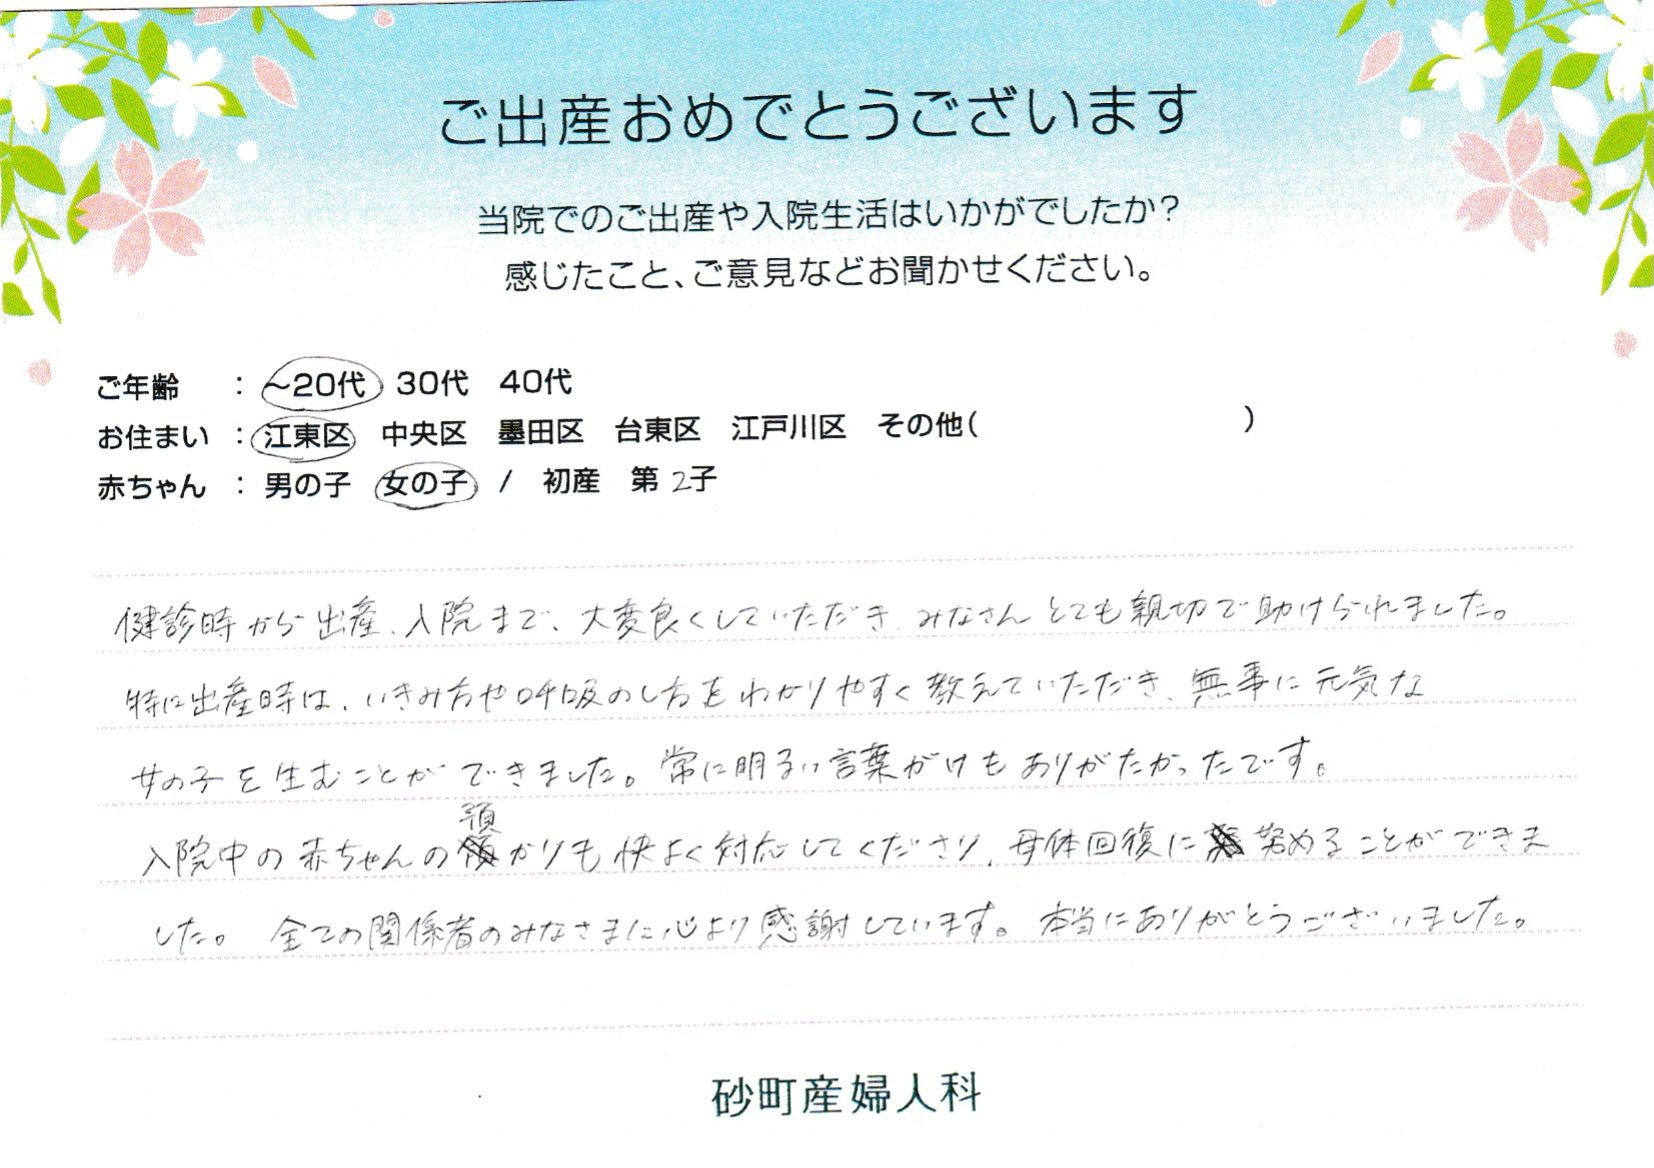 ご出産おめでとうございます
当院でのご出産や入院生活はいかがでしたか?
感じたこと、ご意見などお聞かせください。
ご年齢 : ~20代 30代 40代
お住まい : 江東区 中央区 墨田区 台東区 江戸川区 その他( )
赤ちゃん : 男の子 女の子 / 初産 第2子
健診時から出産、入院まで、大変良くしていただき、みなさんとても親切で助けられました。
特に出産時は、いきみ方や呼吸のし方をわかりやすく教えていただき、無事に元気な
女の子を生むことができました。常に明るい言葉がけもありがたかったです。
入院中の赤ちゃんの預かりも快よく対応してくださり、母体回復に努めることができま
した。全ての関係者のみなさまに心より感謝しています。本当にありがとうございました。
砂町産婦人科